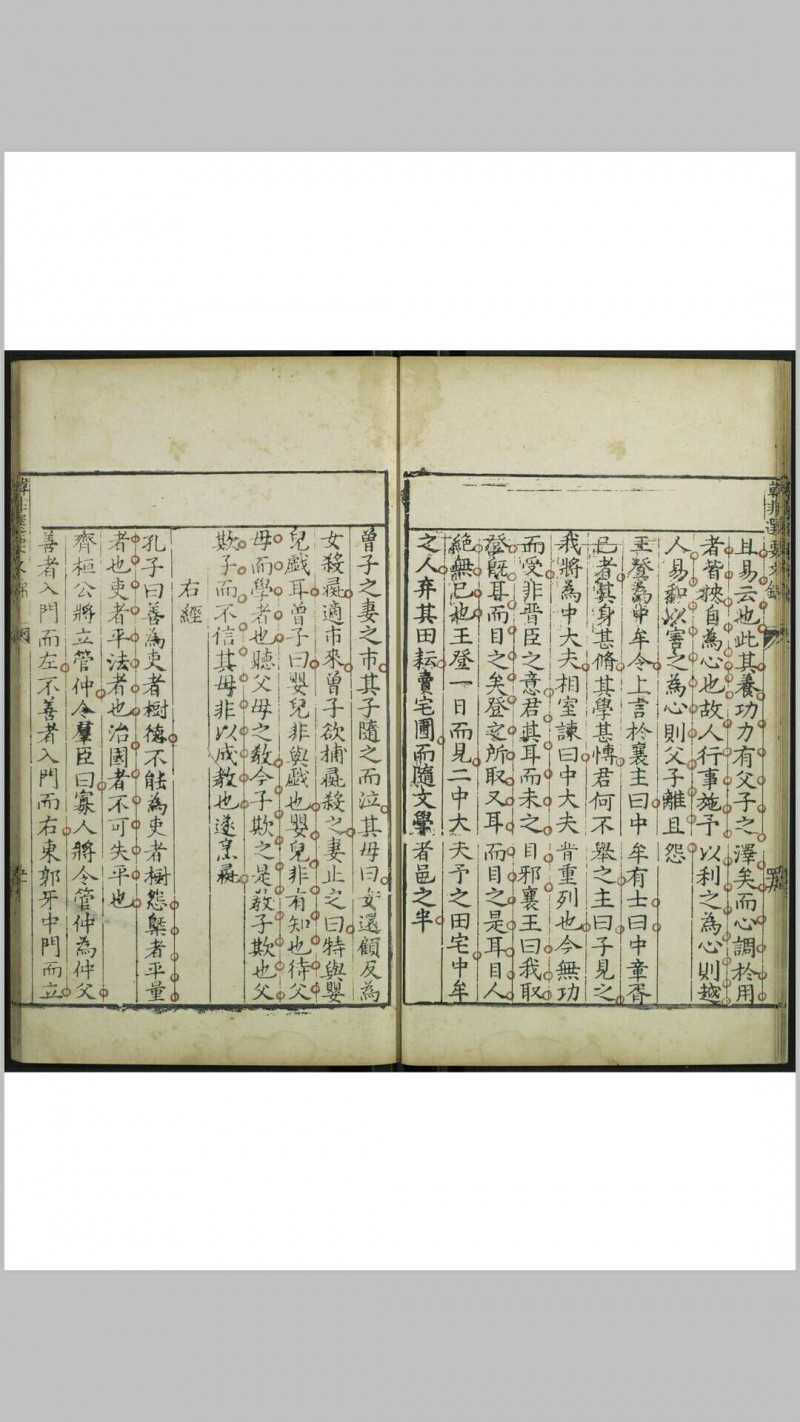 且易云也此其養功力有父子之澤矣而心調於用
者皆挾自為心也故人行事施予以利之為心則越
人易和以害之為心則父子離且怨
王登為中牟令上言於襄主曰中牟有士曰中章胥
已者其身甚脩其學甚博君何不舉之主曰子見之
我將為中大夫相室諫曰中大夫晋重列也今無功
而受非晋臣之意君其耳而未之目邪襄王曰我取
登既耳而目之矣登之所取又耳而目之是耳目人
絕無已也王登一日而見二中大夫予之田宅中牟
之人弃其田耘賣宅圃而隨文學者邑之半
曾子之妻之市其子隨之而泣其母曰女還顧反為
女殺彘適市來曾子欲捕彘殺之妻止之曰特與嬰
兒戲耳曾子曰嬰兒非與戲也嬰兒非有知也待父
母而學者也聽父母之教今子欺之是教子欺也父
欺子而不信其母非以成教也遂烹彘
右經
孔子曰善為吏者樹德不能為吏者樹怨槩者平量
者也吏者平法者也治國者不可失平也
齊桓公將立管仲令羣臣曰寡人將令管仲為仲父
善者入門而左不善者入門而右東郭牙中門而立